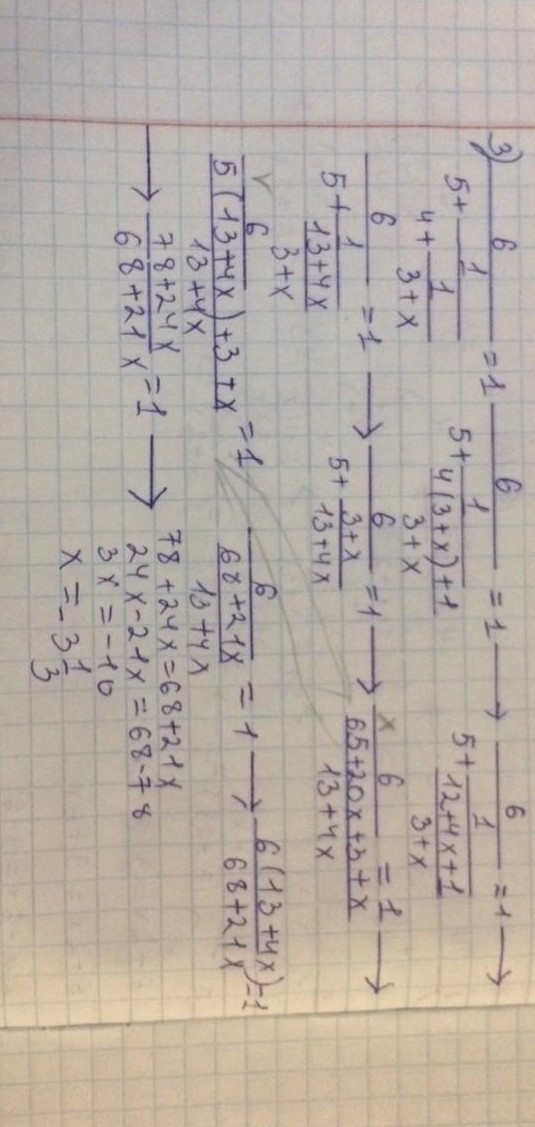 3) 6/(5+1/(4+1/(3+x))) = 1 6/(5+1/((4(3+x)+1)/(3+x))) = 1 → 6/(5+1/((12+4x+1)/(3+x))) = 1 →
6/(5+1/((13+4x)/(3+x))) = 1 → 6/(5+(3+x)/(13+4x)) = 1 → 6/((65+20x+3+x)/(13+4x)) = 1 →
6/((5(13+4x)+3+x)/(13+4x)) = 1 6/((68+21x)/(13+4x)) = 1 → 6(13+4x)/(68+21x) = 1
→ (78+24x)/(68+21x) = 1 → 78+24x = 68+21x
24x-21x = 68-78
3x = -10
x = -3 1/3